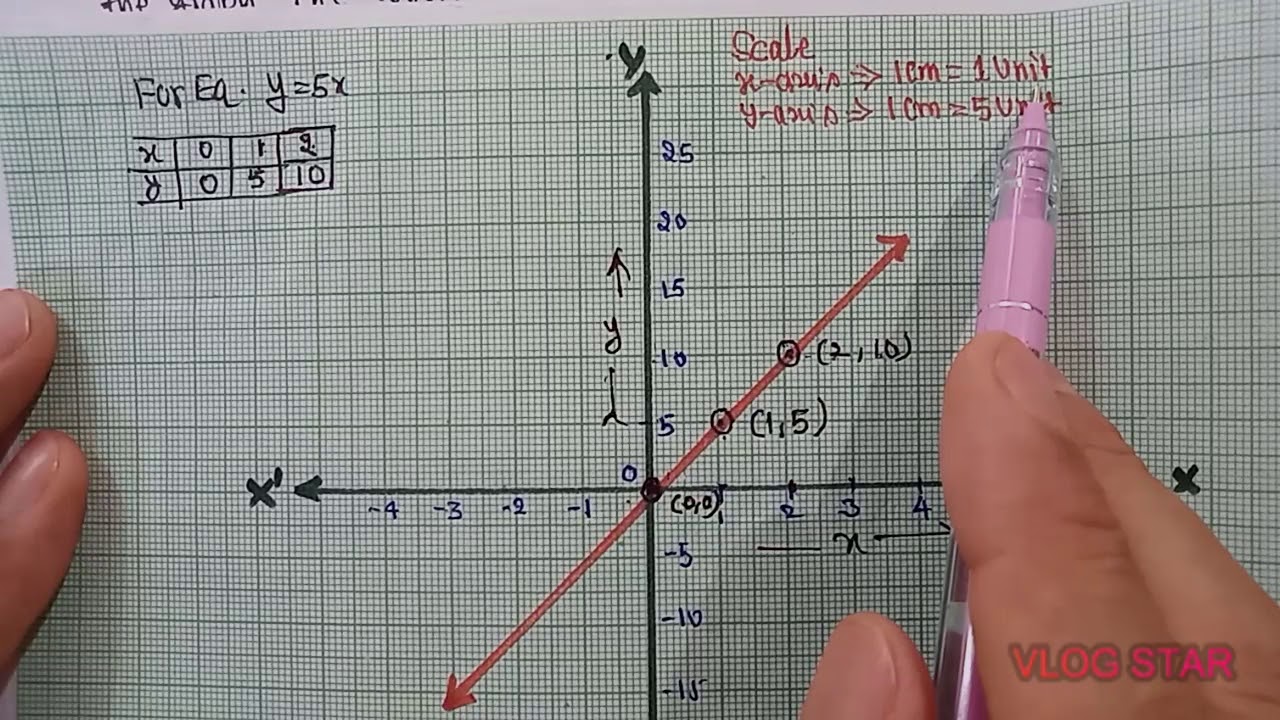 For Eq. y=5x
x 0 1 2
y 0 5 10
Scale
x-axis ⇒ 1cm = 1 Unit
y-axis ⇒ 1cm = 5 Unit
Y
25
20
15
y
10 (2,10)
5 (1,5)
0
X' -4 -3 -2 -1 (0,0) 1 2 3 4 X
x
-5
-10
-15
VLOG STAR